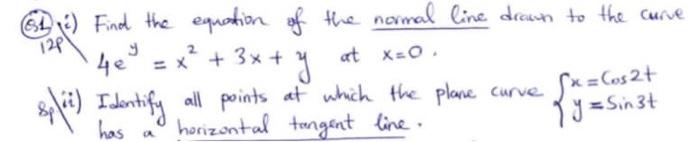 Q1 i) Find the equation of the normal line drawn to the curve
12p
4e^y = x² + 3x + y at x=0.
8p ii) Identify all points at which the plane curve { x = Cos2t
y = Sin3t
has a horizontal tangent line.